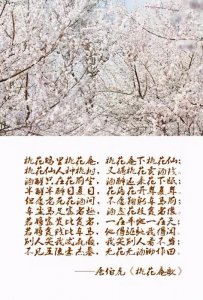 桃花坞里桃花庵，桃花庵下桃花仙；
桃花仙人种桃树，又摘桃花换酒钱。
酒醒只在花前坐，酒醉还来花下眠；
半醒半醉日复日，花落花开年复年。
但愿老死花酒间，不愿鞠躬车马前；
车尘马足富者趣，酒盏花枝贫者缘。
若将富贵比贫贱，一在平地一在天；
若将贫贱比车马，他得驱驰我得闲。
别人笑我忒疯癫，我笑别人看不穿；
不见五陵豪杰墓，无花无酒锄作田。
——唐伯虎《桃花庵歌》